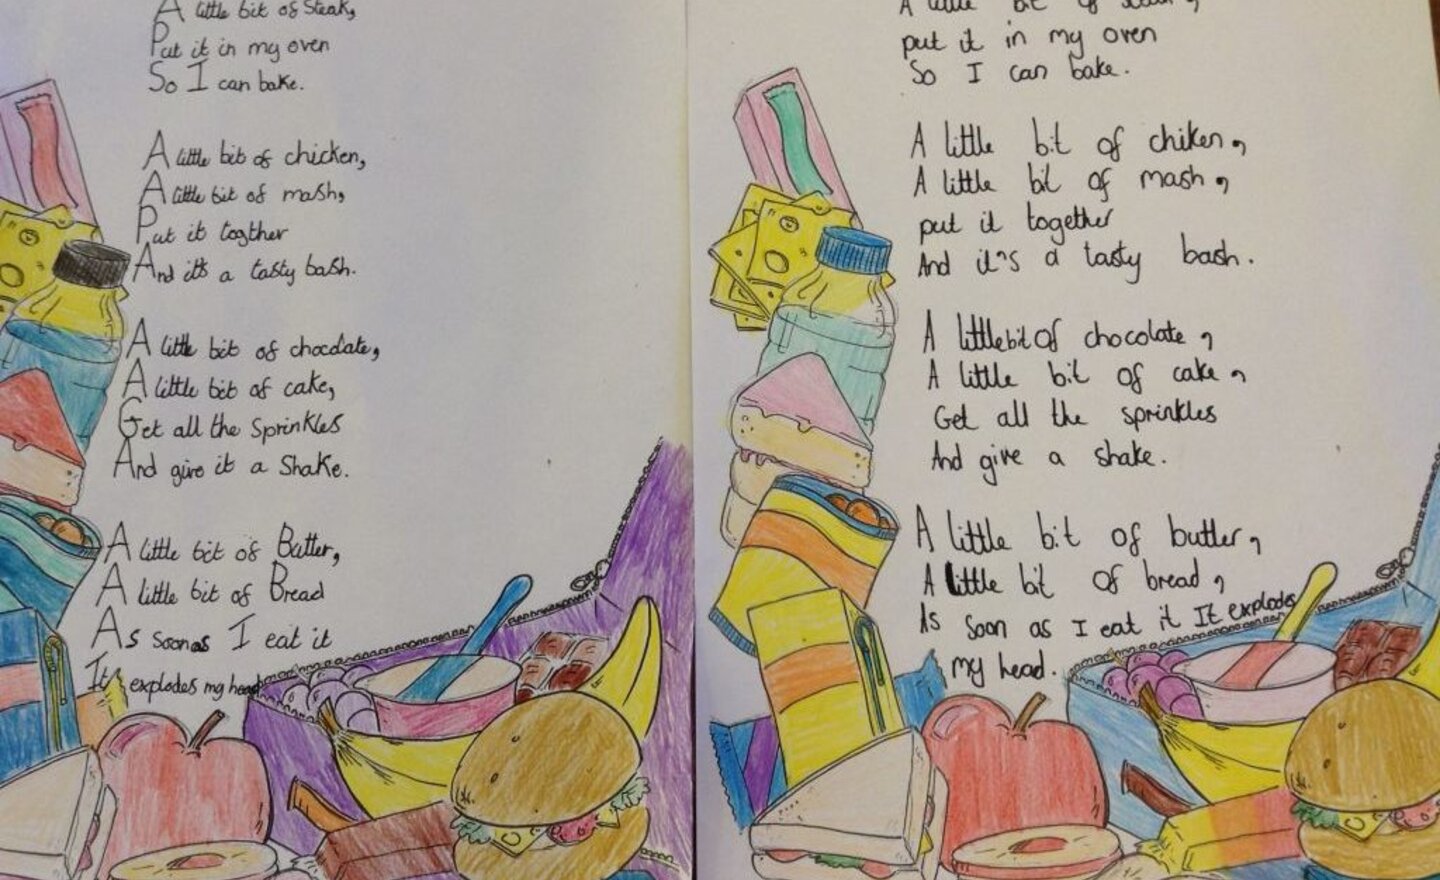 A little bit of Steak,
Put it in my oven
So I can bake.
A little bit of chicken,
A little bit of mash,
Put it togther
And it's a tasty bash.
A little bit of chocolate,
A little bit of cake,
Get all the Sprinkles
And give it a Shake.
A little bit of Butter,
A little bit of Bread
As soon as I eat it
It explodes my head
A little bit of
put it in my oven
So I can bake.
A little bit of chiken,
A little bit of mash,
put it together
And it's a tasty bash.
A little bit of chocolate,
A little bit of cake,
Get all the sprinkles
And give a shake.
A little bit of butter,
A little bit of bread,
As soon as I eat it It explodes
my head.